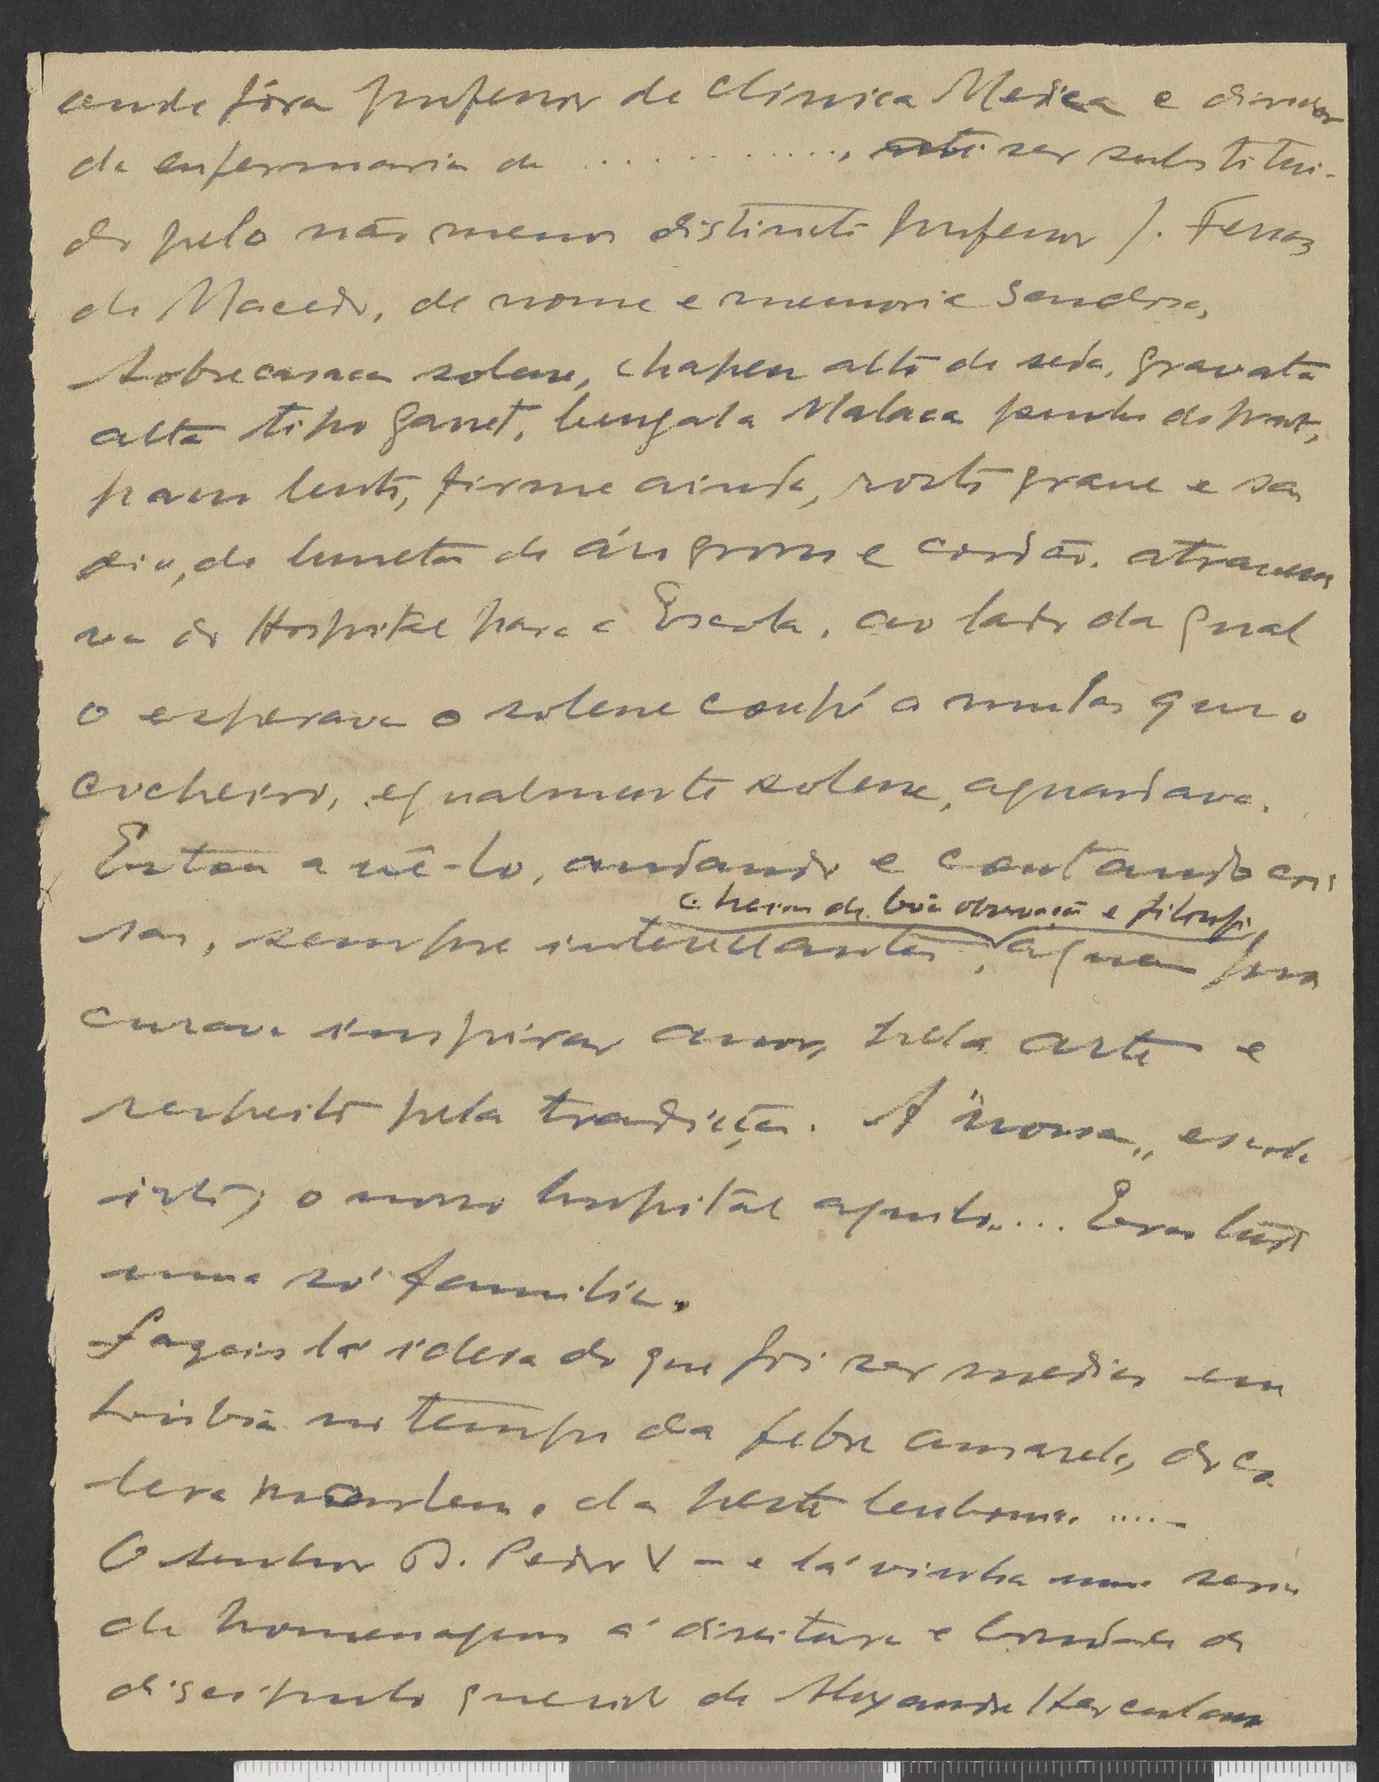 onde fôra professor de clinica Medica e director
da enfermaria de ............, até ser substitui-
do pelo não menos distincto professor J. Ferraz
de Macedo, de nome e memoria saudosa,
Sobrecasaca solene, chapeu alto de seda, gravata
alta tipo Garret, bengala Malaca punho de prata,
passo lento, firme ainda, rosto grave e sa
dio, de luneta de áro grosso e cordão, atravessa
va do Hospital para a Escola, ao lado da qual
o esperava o solene coupé a mulas que o
cocheiro, egualmente solene, aguardava.
Estou a vê-lo, andando e contando coi
cheias de boa observação e filosofia
sas, sempre interessantes, a quem pro
curava inspirar amor pela arte e
respeito pela tradicção. A "nossa" escola
isto; o nosso hospital aquilo.... Era tudo
uma só familia.
Façais lá idea do que foi ser medico em
Lisboa no tempo da febre amarela, do co
lera morbus, da peste bubonica .....
O senhor D. Pedro V — e lá vinha uma serie
de homenagens á direitura e bondade do
discipulo querido de Alexandre Herculano